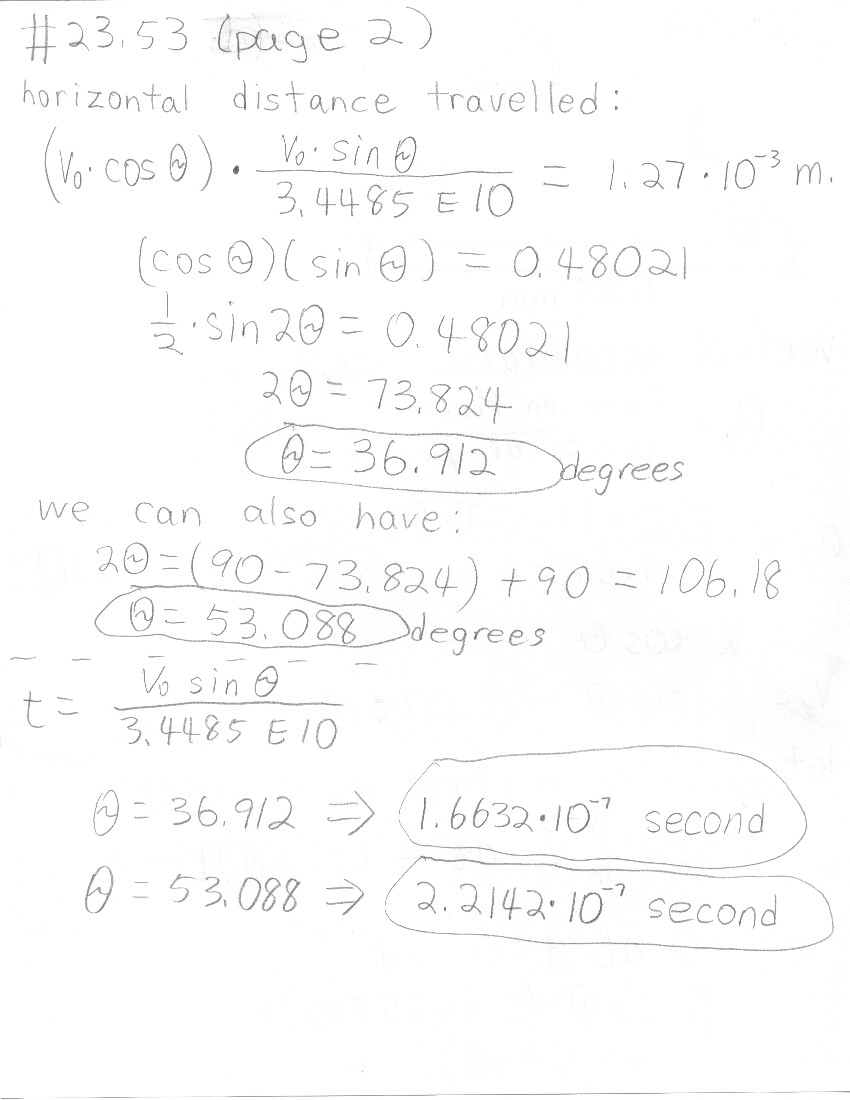 #23.53 (page 2)
horizontal distance travelled:
(V₀·cos θ) · (V₀·sin θ)/(3.4485 E10) = 1.27·10⁻³ m.
(cos θ)(sin θ) = 0.48021
½·sin 2θ = 0.48021
2θ = 73.824
θ = 36.912 degrees
we can also have:
2θ = (90 - 73.824) + 90 = 106.18
θ = 53.088 degrees
t = (V₀ sin θ)/(3.4485 E10)
θ = 36.912 ⇒ 1.6632·10⁻⁷ second
θ = 53.088 ⇒ 2.2142·10⁻⁷ second